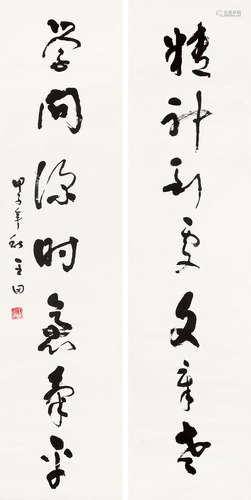 精神到处文章老
学问深时意气平
甲子年秋